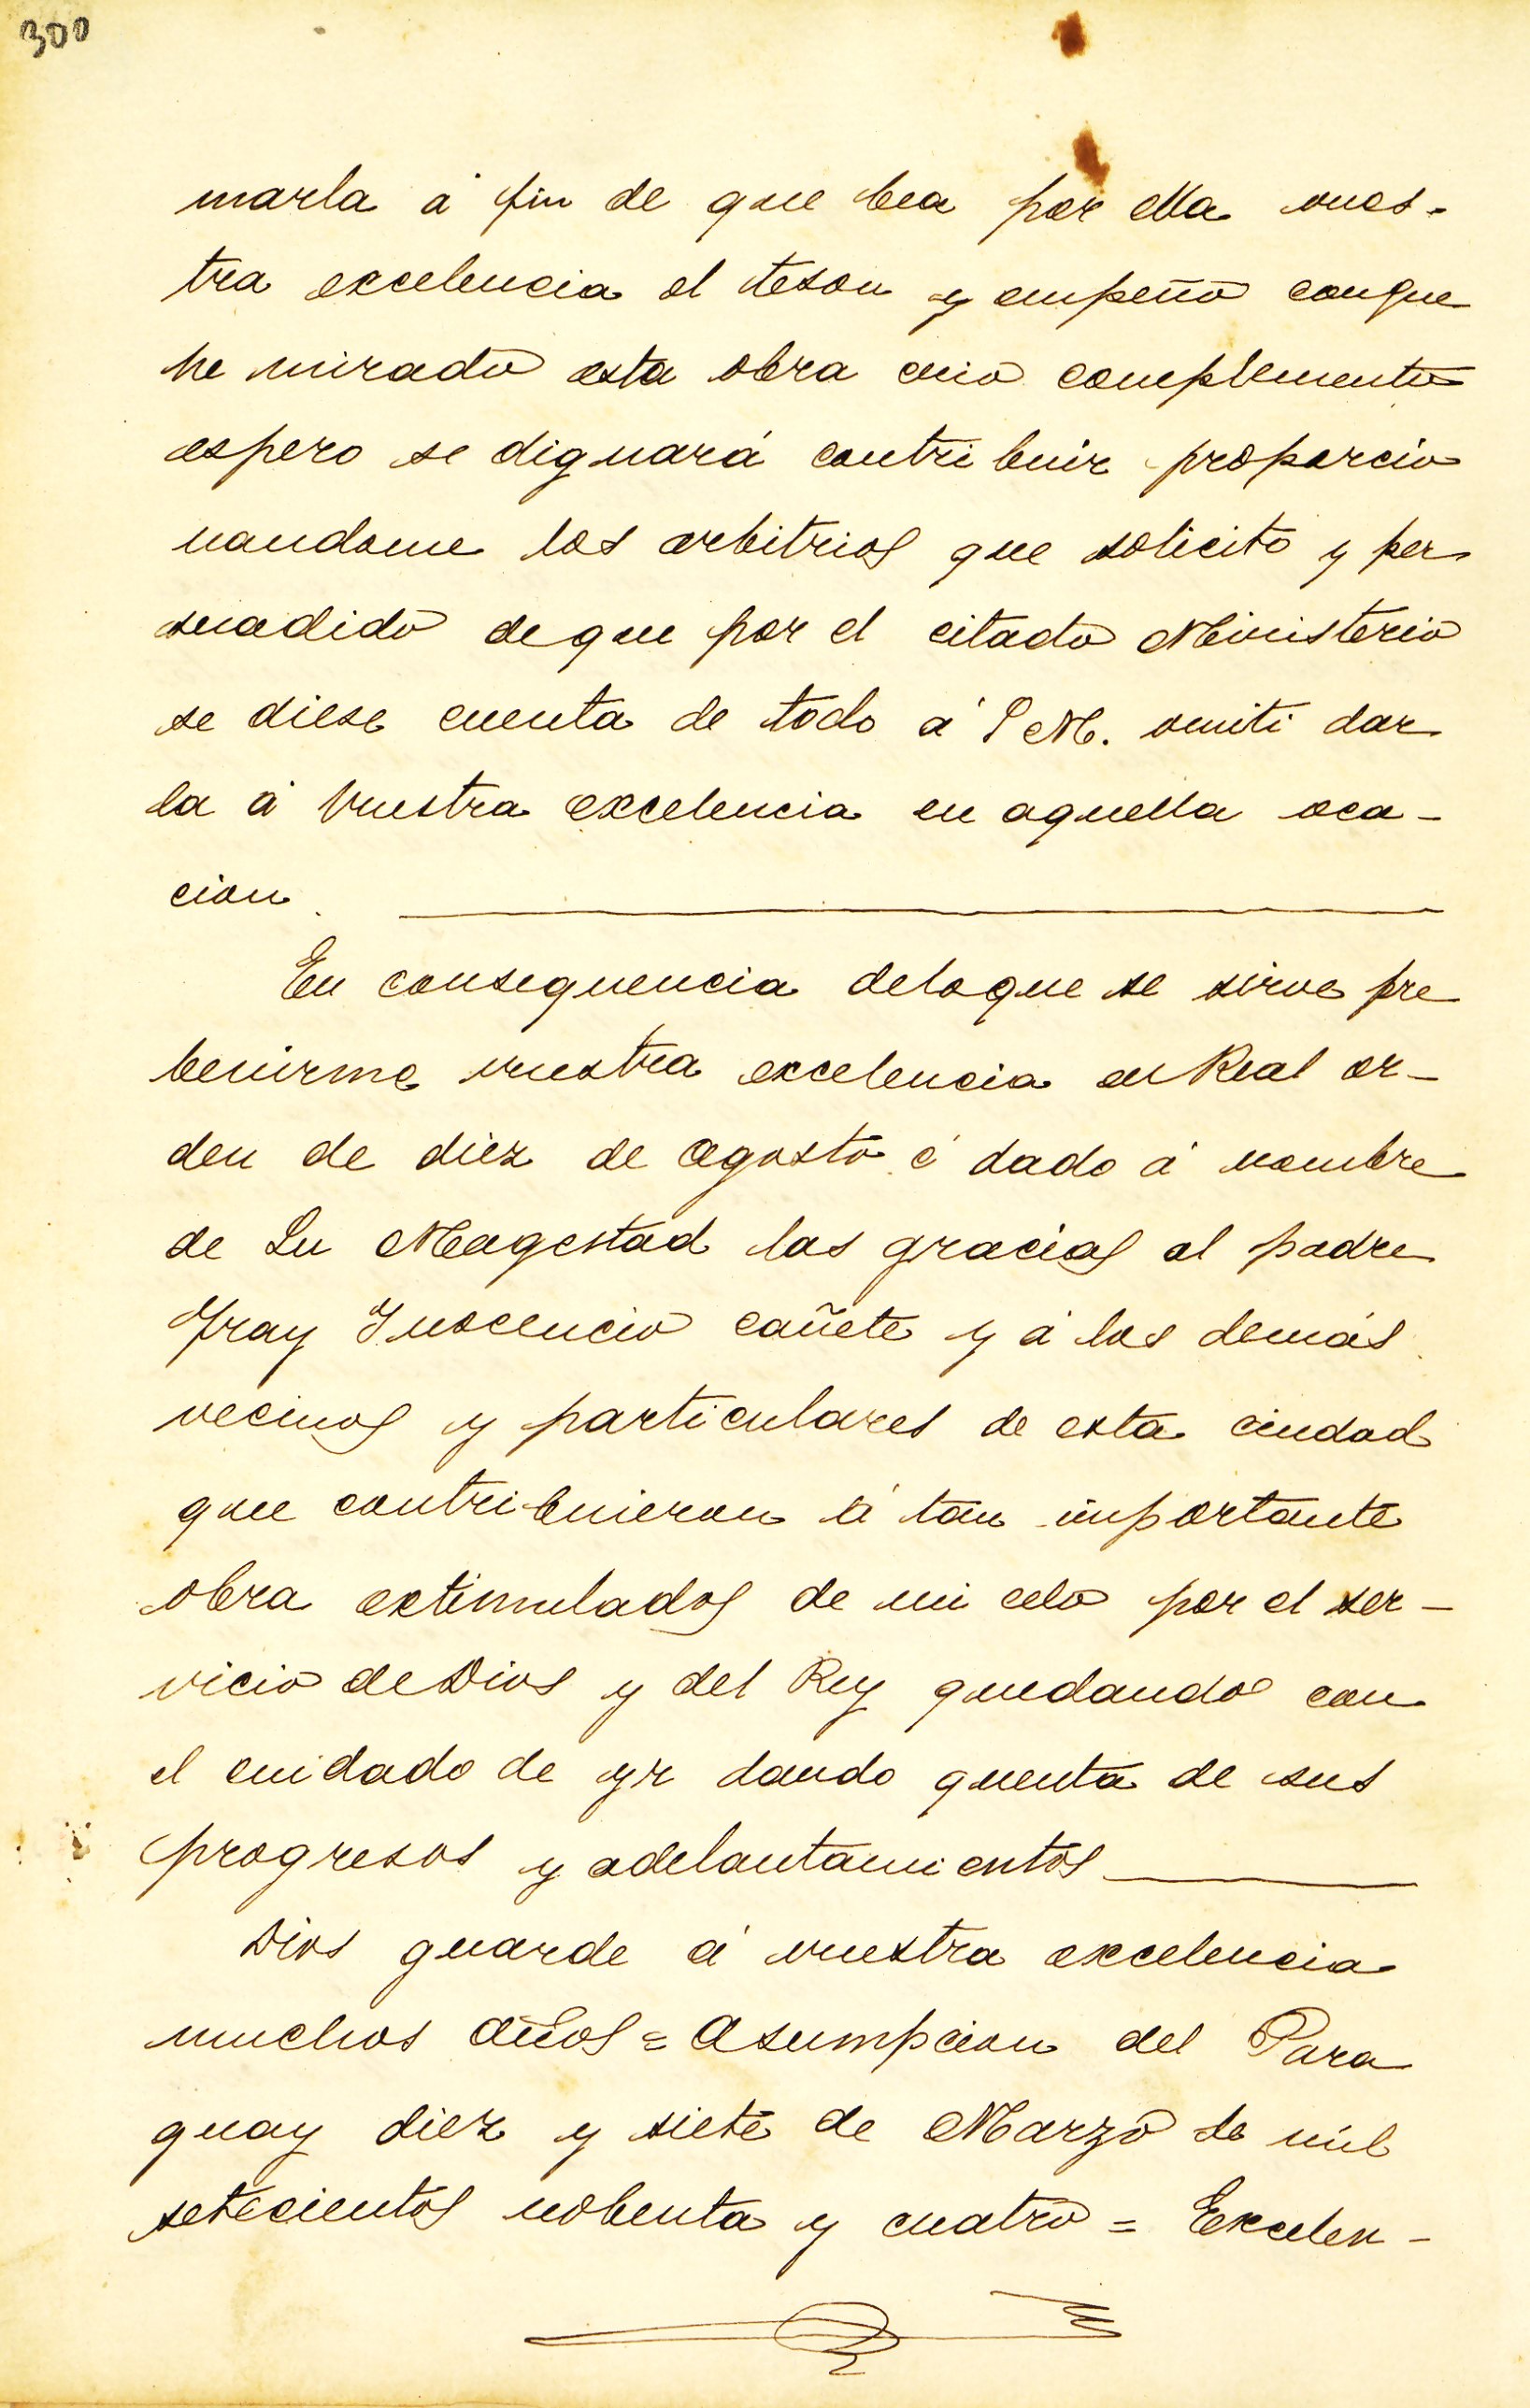 300
marla á fin de que bea por ella vues-
tra excelencia el teson y empeño conque
he mirado esta obra cuio complemento
espero se dignará contribuir proporcio
nandome los arbitrios que solicito y per
suadido de que por el citado Ministerio
se diese cuenta de todo á S M. omiti dar
la á Vuestra excelencia en aquella oca-
cion.
En consequencia deloque se sirve pre
benirme vuestra excelencia en Real or-
den de diez de agosto é dado á nombre
de Su Magestad las gracias al padre
Fray Inocencio cañete y á los demás
vecinos y particulares de esta ciudad
que contribuieron á tan importante
obra extimulados de mi celo por el ser-
vicio de Dios y del Rey quedando con
el cuidado de yr dando quenta de sus
progresos y adelantamientos
Dios guarde á vuestra excelencia
muchos años = Asumpcion del Para
guay diez y siete de Marzo de mil
setecientos nobenta y cuatro = Excelen-